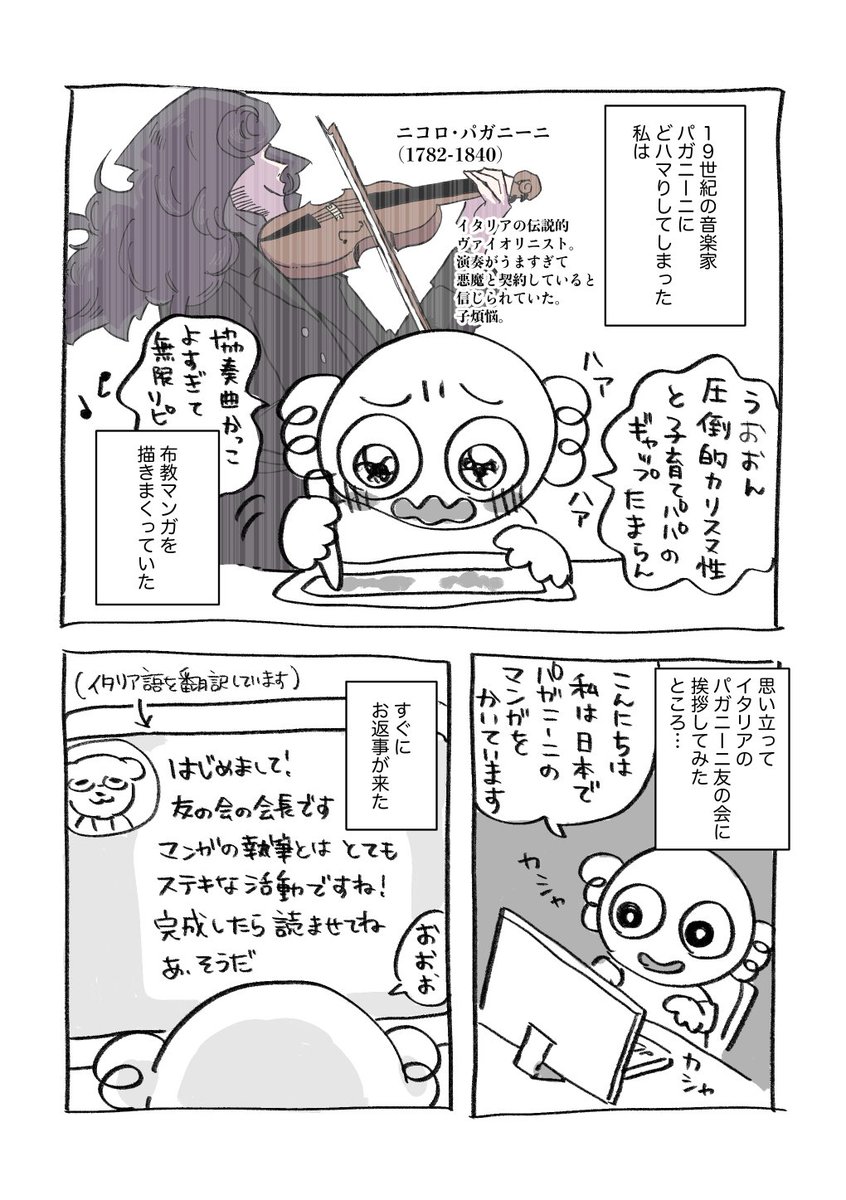 19世紀の音楽家
パガニーニに
どハマりしてしまった
私は
ニコロ・パガニーニ
(1782-1840)
イタリアの伝説的
ヴァイオリニスト。
演奏がうますぎて
悪魔と契約していると
信じられていた。
子煩悩。
うおおん
圧倒的カリスマ性
と子育てパパの
ギャップたまらん
ハァ
ハァ
協奏曲かっこ
よすぎて
無限リピ
布教マンガを
描きまくっていた
思い立って
イタリアの
パガニーニ友の会に
挨拶してみた
ところ…
こんにちは
私は日本で
パガニーニの
マンガを
かいています
カシャ
カシャ
すぐに
お返事が来た
(イタリア語を翻訳しています)
はじめまして!
友の会の会長です
マンガの執筆とは とても
ステキな活動ですね!
完成したら読ませてね
あ、そうだ
おぉぉ